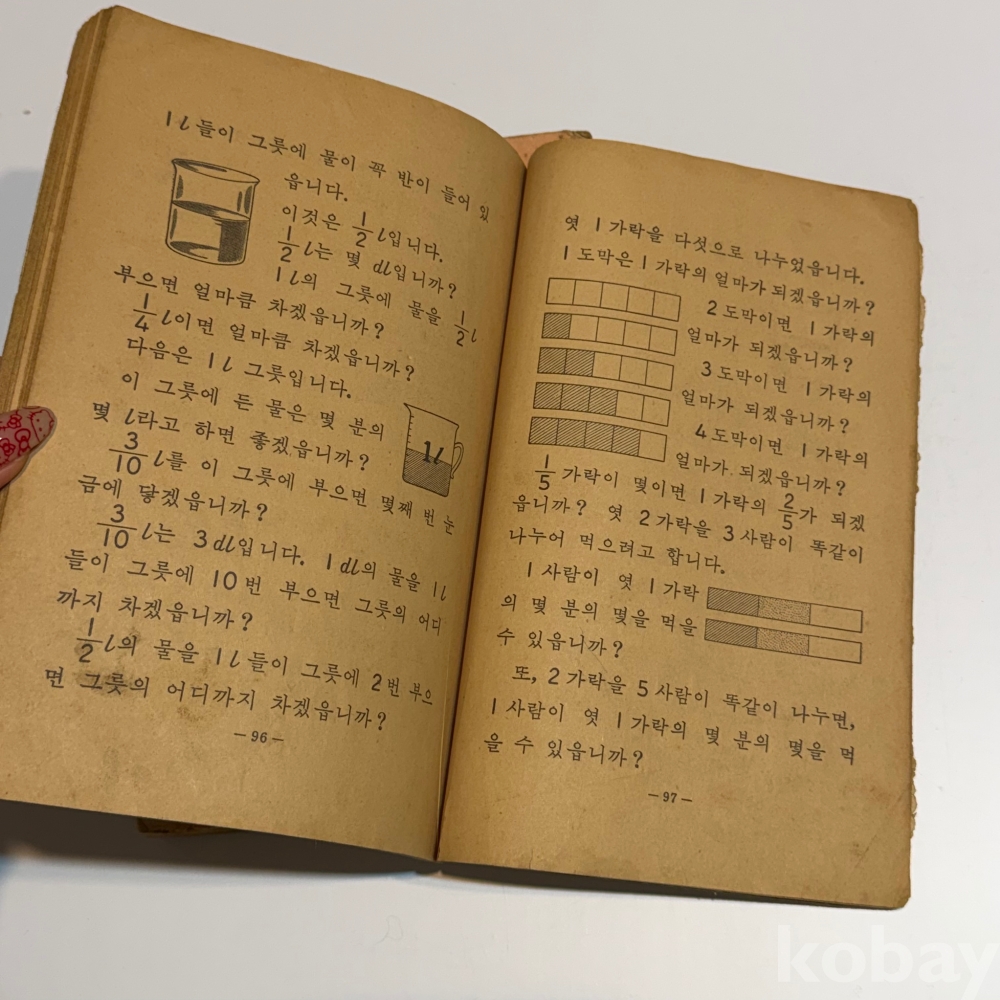 1l들이 그릇에 물이 꼭 반이 들어 있
읍니다.
이것은 1/2 l입니다.
1/2 l는 몇 dl입니까?
1l의 그릇에 물을 1/2 l
부으면 얼마큼 차겠읍니까?
1/4 l이면 얼마큼 차겠읍니까?
다음은 1l 그릇입니다.
이 그릇에 든 물은 몇 분의
몇 l라고 하면 좋겠읍니까?
1l
3/10 l를 이 그릇에 부으면 몇째 번 눈
금에 닿겠읍니까?
3/10 l는 3dl입니다. 1dl의 물을 1l
들이 그릇에 10번 부으면 그릇의 어디
까지 차겠읍니까?
1/2 l의 물을 1l들이 그릇에 2번 부으
면 그릇의 어디까지 차겠읍니까?
—96—
엿 1가락을 다섯으로 나누었읍니다.
1도막은 1가락의 얼마가 되겠읍니까?
2도막이면 1가락의
얼마가 되겠읍니까?
3도막이면 1가락의
얼마가 되겠읍니까?
4도막이면 1가락의
얼마가 되겠읍니까?
1/5 가락이 몇이면 1가락의 2/5가 되겠
읍니까? 엿 2가락을 3사람이 똑같이
나누어 먹으려고 합니다.
1사람이 엿 1가락
의 몇 분의 몇을 먹을
수 있읍니까?
또, 2가락을 5사람이 똑같이 나누면,
1사람이 엿 1가락의 몇 분의 몇을 먹
을 수 있읍니까?
—97—
kobay